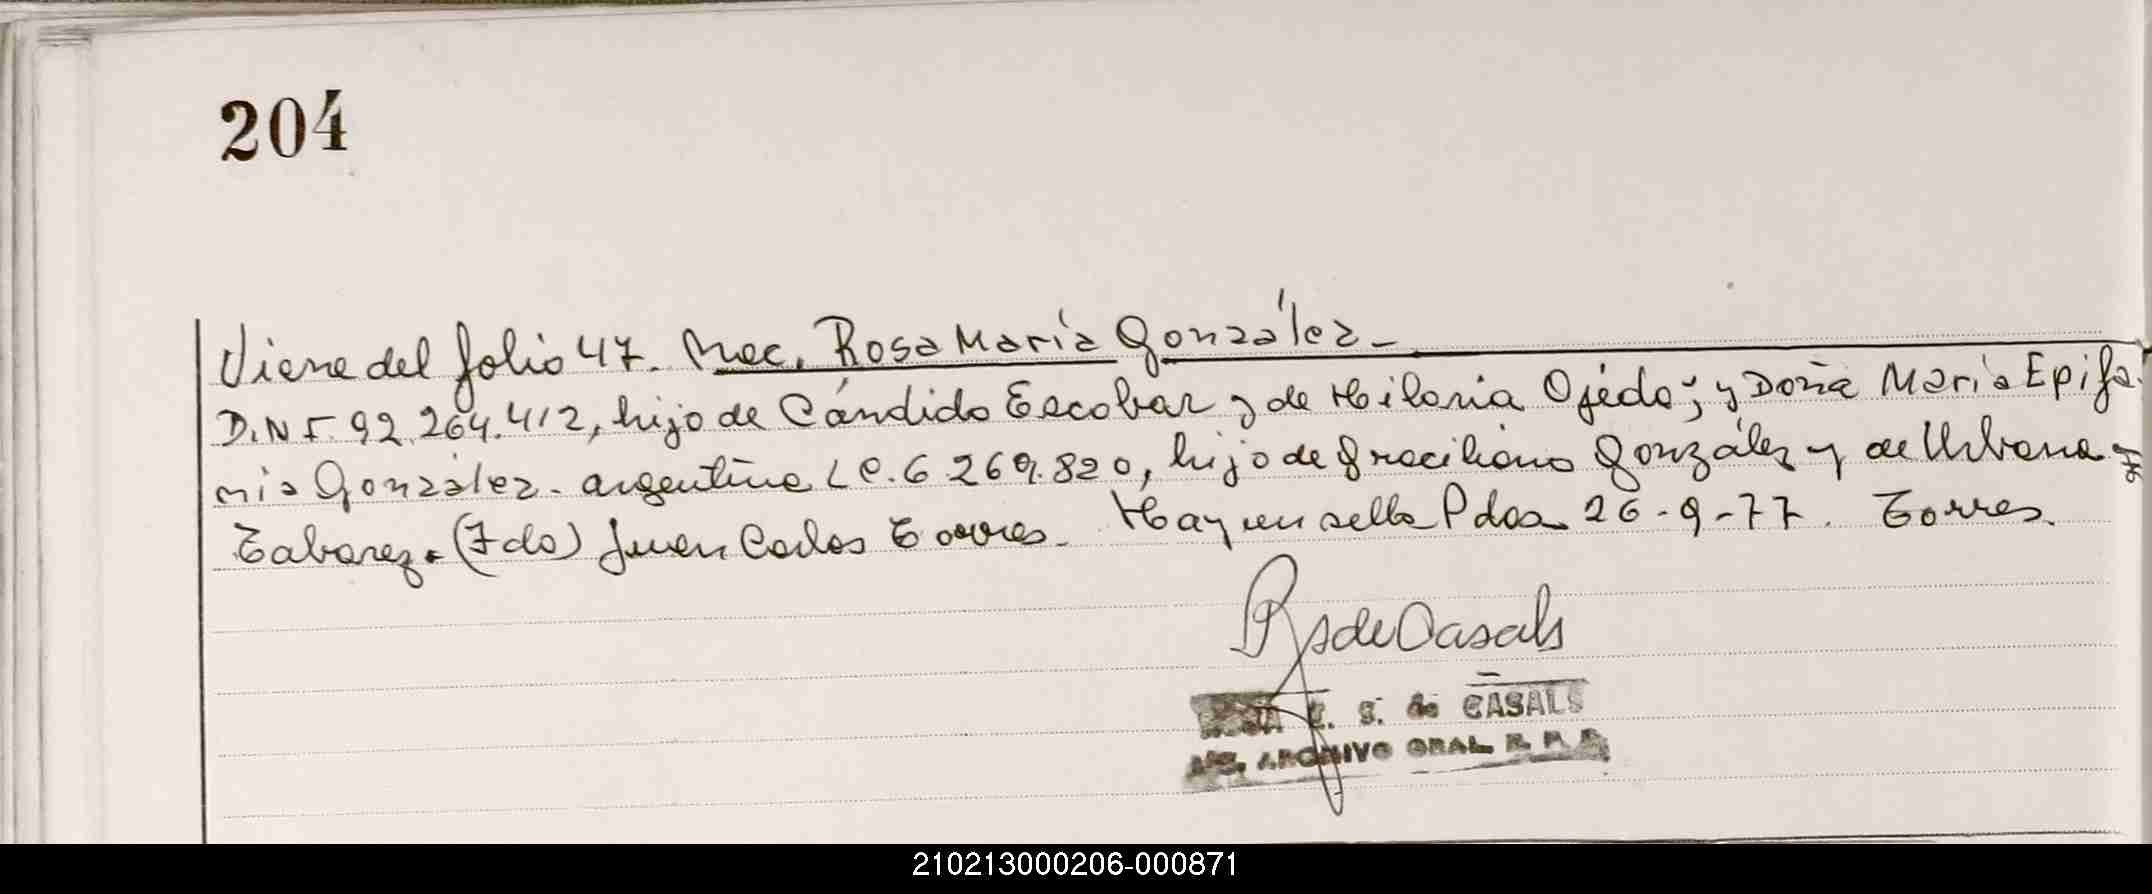 204
Viene del folio 47. Nac. Rosa María González -
D.N.I. 92.264.412, hijo de Cándido Escobar y de Hilaria Ojeda; y Doña María Epifa
nia González - argentina L C. 6 269.820, hijo de Graciliano González y de Urbana
Tabarez. (Fdo) Juan Carlos Torres. Hay un sello Pdas 26-9-77. Torres.
RS de Casals
E. S. de CASALS
ARCHIVO GRAL R. P.
210213000206-000871